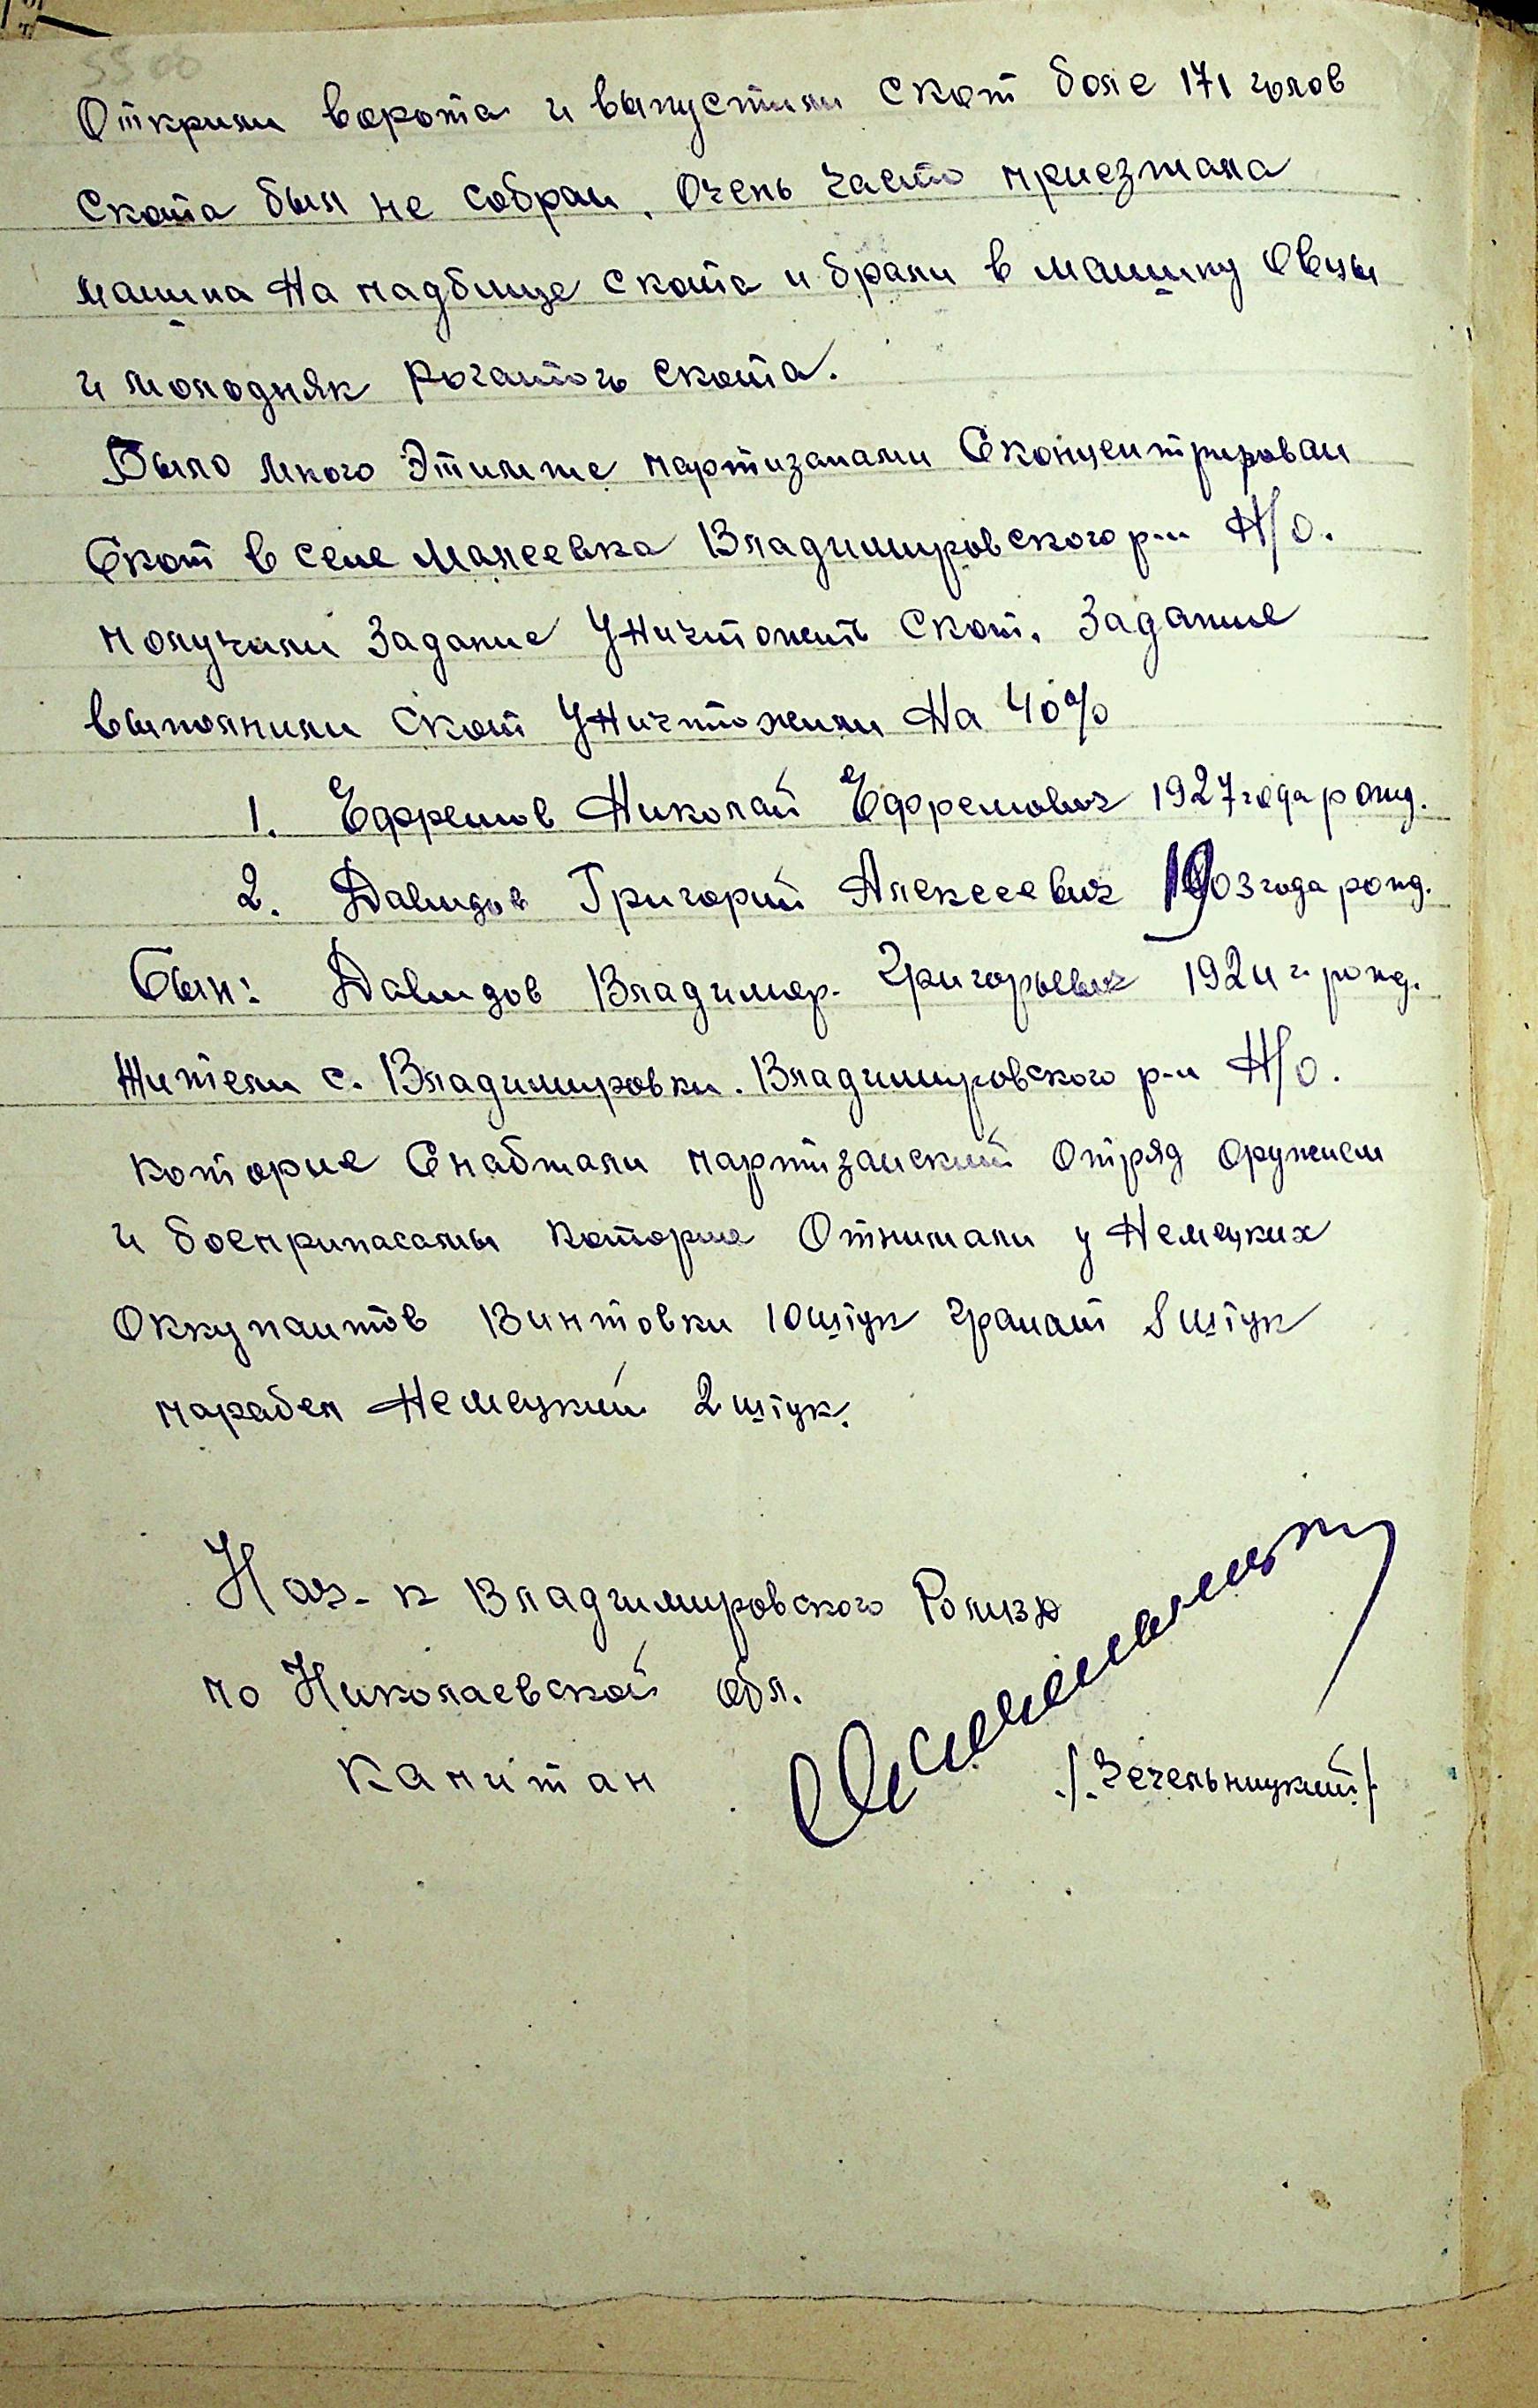 Открили ворота и выпустили скот боле 171 голов
Скота был не собран. Очень часто приезжала
машина На падбище скота и брали в машину Овцы
и молодняк рогатого скота.
Было много Этимже партизанами Сконцентрирован
Скот в селе Малеевка Владимировского р-н Н/о.
получили Задание Уничтожить Скот. Задание
выполнили Скот Уничтожили На 40%
1. Ефремов Николай Ефремович 1927 года рожд.
2. Давидов Григорий Алексеевич 1903 года рожд.
Сын: Давидов Владимер. Григорьевич 1924 г рожд.
Жители с. Владимировки. Владимировского р-н Н/о.
которие Снабжали партизанский Отряд оружием
и боеприпасамы которие Отнимали у Немецких
Оккупантов Винтовки 10 штук гранат 8 штук
парабел Немецкий 2 штук.
Нач-к Владимировского
по Николаевской обл.
Капитан
/.Чечельницкий/